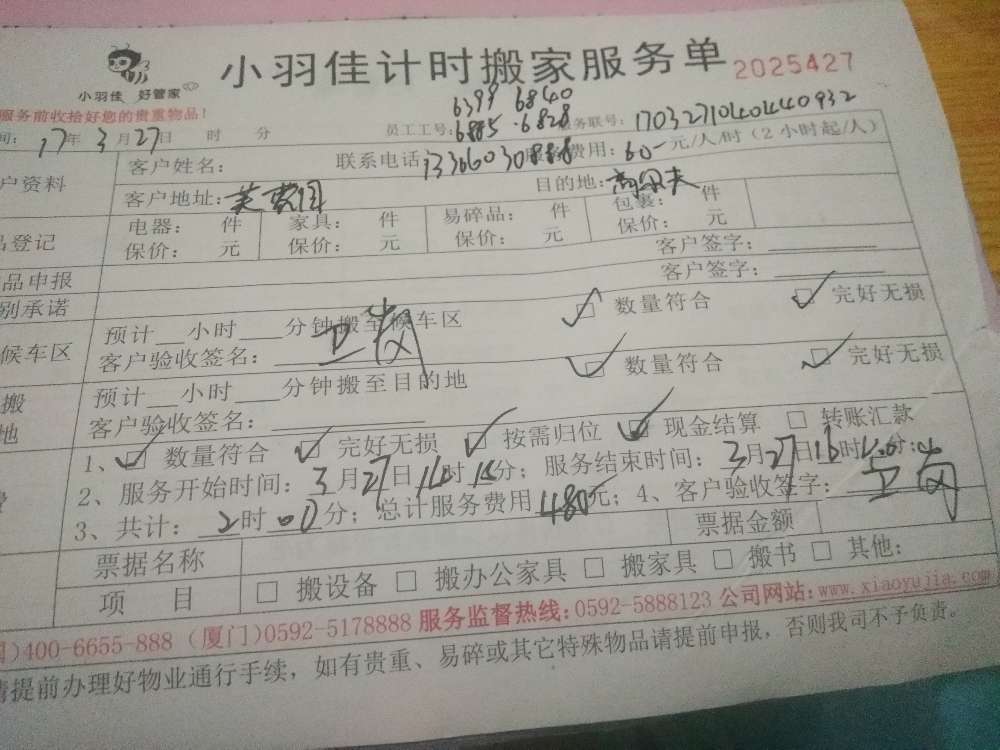 小羽佳 好管家
小羽佳计时搬家服务单 2025427
服务前收拾好您的贵重物品!
6399 6840
间: 17年3月27日 时 分 员工工号: 6885 · 6828 服务联号: 17032710404440932
户资料 客户姓名: 联系电话: 13366030888 服务费用: 60 元/人/时(2小时起/人)
客户地址: 芙蓉园 目的地: 高尔夫
品登记 电器: 件 家具: 件 易碎品: 件 包裹: 件
保价: 元 保价: 元 保价: 元 保价: 元
品申报 客户签字:
别承诺 客户签字:
候车区 预计 小时 分钟搬至候车区 数量符合 完好无损
客户验收签名:
搬 预计 小时 分钟搬至目的地 数量符合 完好无损
地 客户验收签名:
1、 数量符合 完好无损 按需归位 现金结算 转账汇款
费 2、服务开始时间: 3月27日14时15分; 服务结束时间: 3月27日16时 分;
3、共计: 2时00分; 总计服务费用480元; 4、客户验收签字:
票据名称 票据金额
项 目 搬设备 搬办公家具 搬家具 搬书 其他:
国)400-6655-888 (厦门)0592-5178888 服务监督热线:0592-5888123 公司网站:www.xiaoyujia.com
请提前办理好物业通行手续, 如有贵重、易碎或其它特殊物品请提前申报, 否则我司不予负责。